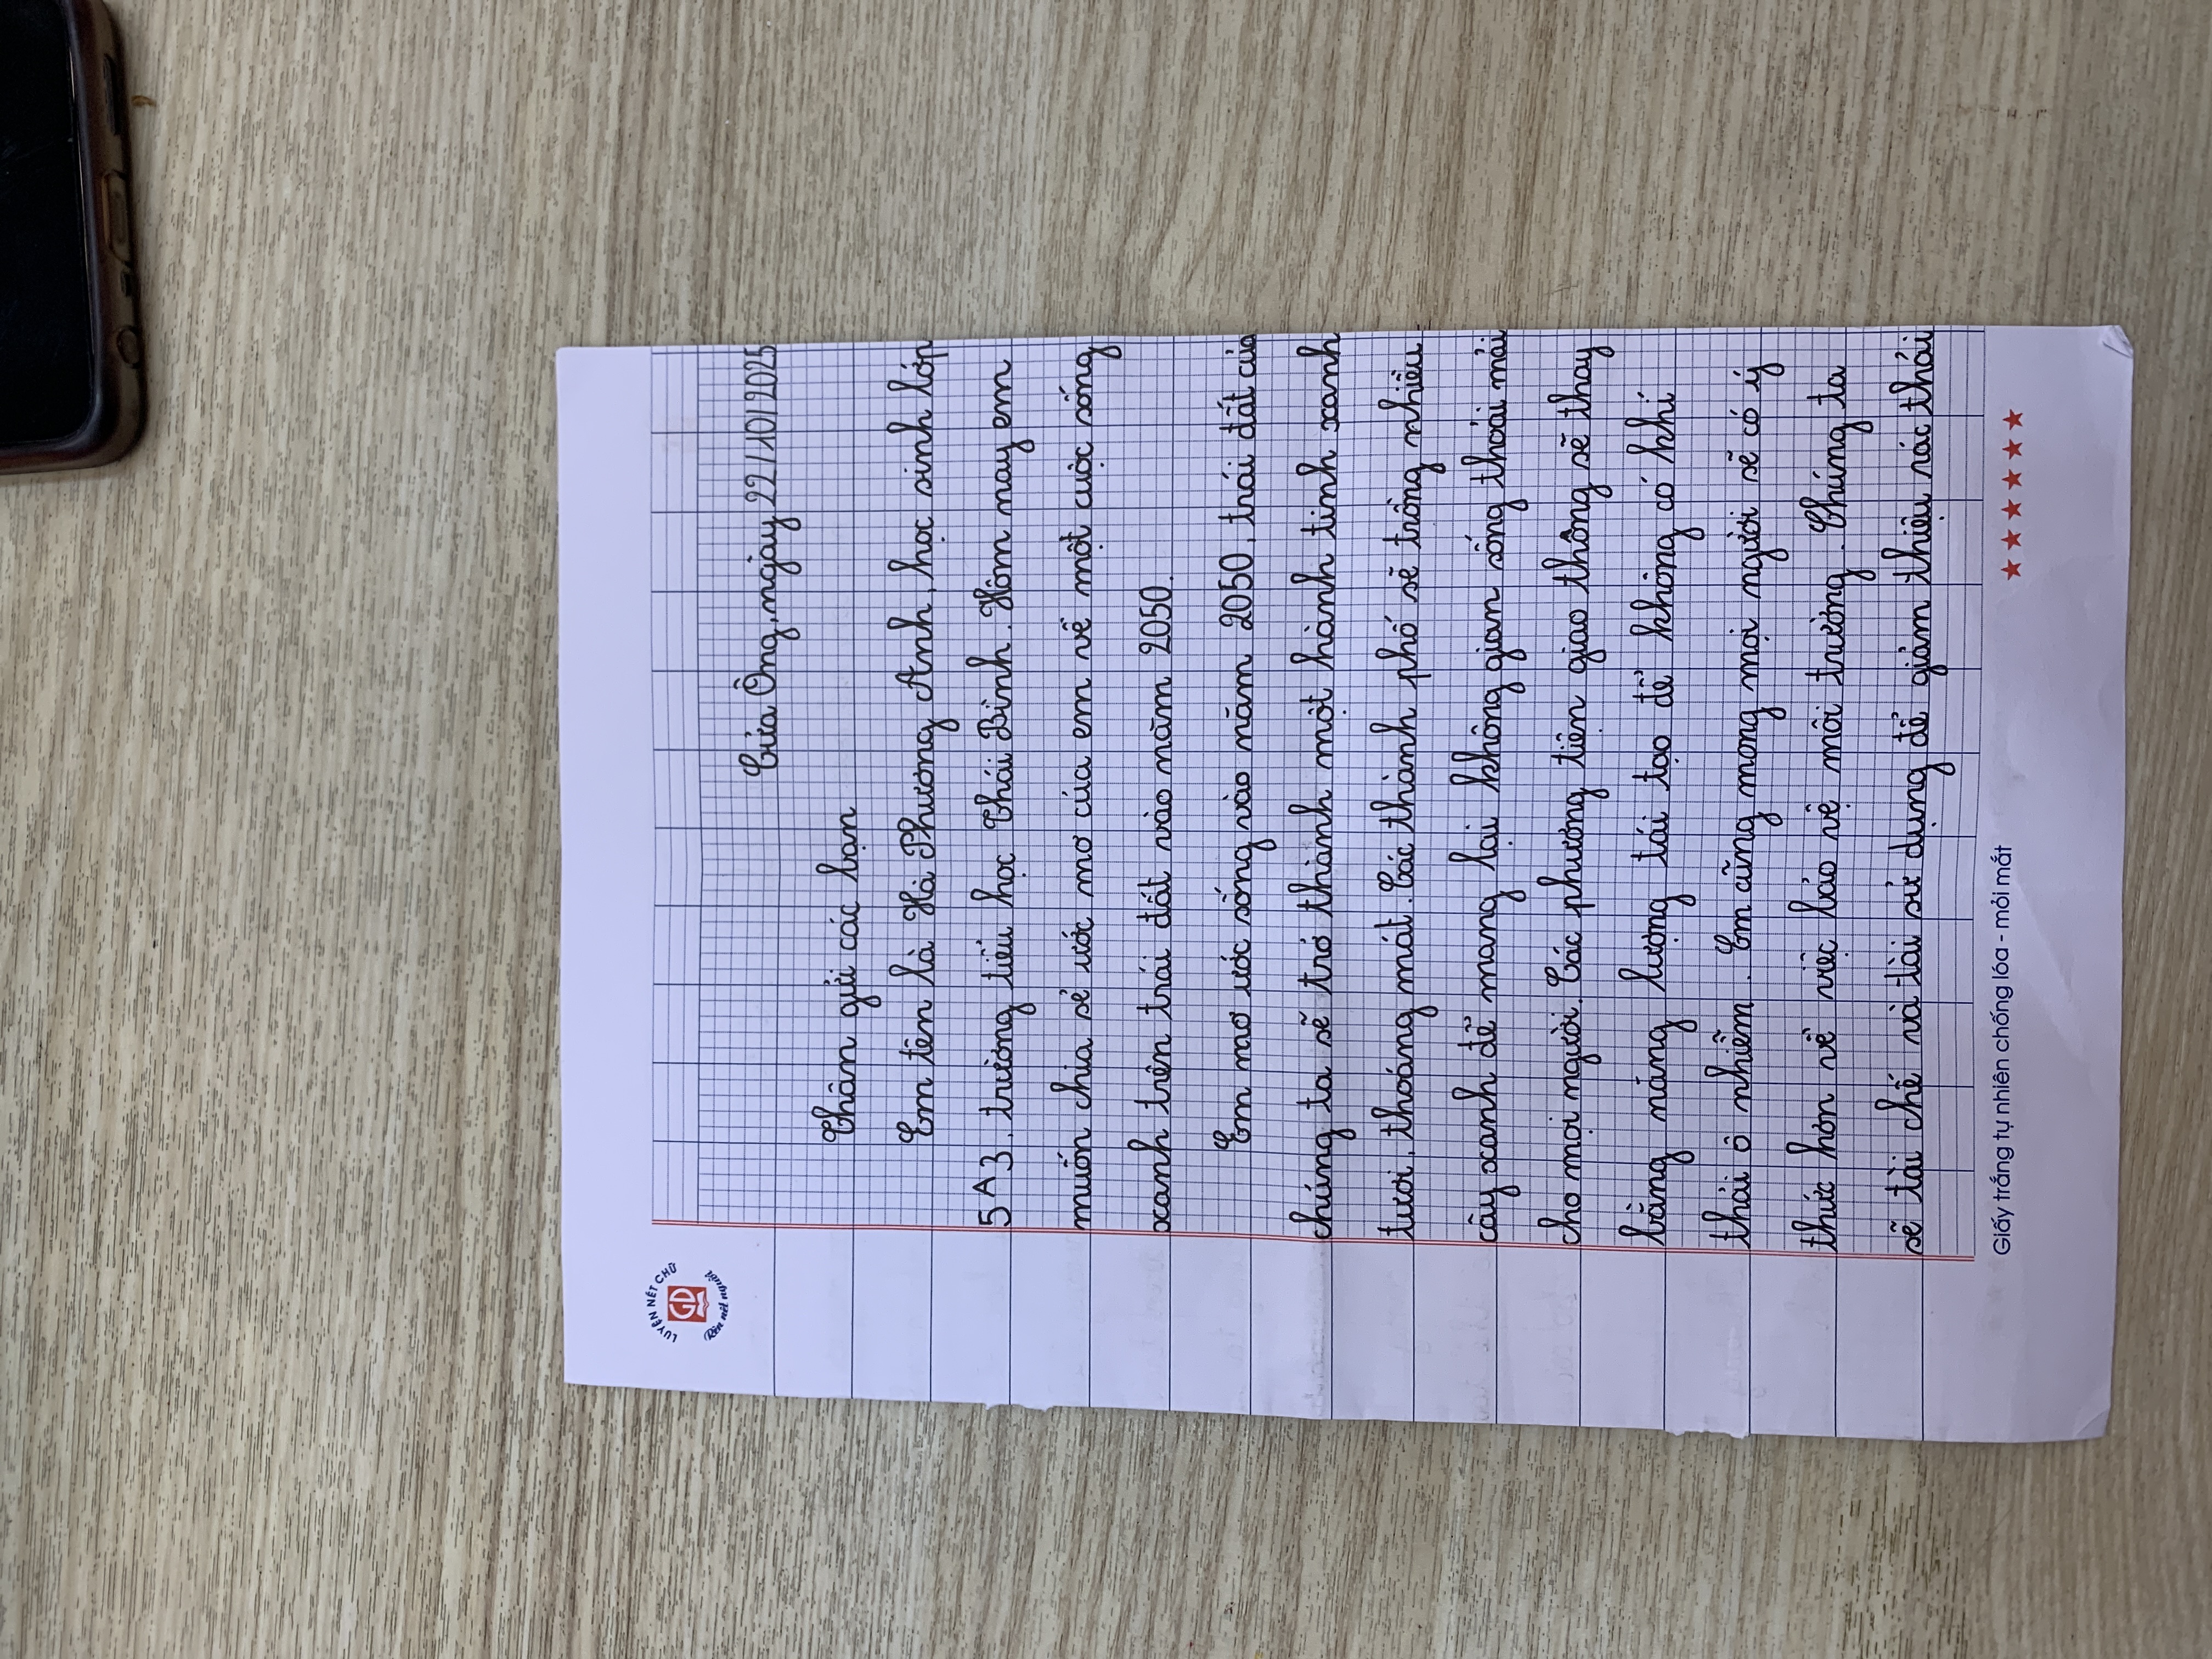 LUYỆN NÉT CHỮ
Rèn nết người
GD
Cửa Ông, ngày 22/10/2025
Thân gửi các bạn
Em tên là Hà Phương Anh, học sinh lớp
5A3, trường tiểu học Thái Bình. Hôm nay em
muốn chia sẻ ước mơ của em về một cuộc sống
xanh trên trái đất vào năm 2050.
Em mơ ước sống vào năm 2050, trái đất của
chúng ta sẽ trở thành một hành tinh xanh
tươi, thoáng mát. Các thành phố sẽ trồng nhiều
cây xanh để mang lại không gian sống thoải mái
cho mọi người. Các phương tiện giao thông sẽ thay
bằng năng lượng tái tạo để không có khí
thải ô nhiễm. Em cũng mong mọi người sẽ có ý
thức hơn về việc bảo vệ môi trường. Chúng ta
sẽ tái chế và tái sử dụng để giảm thiểu rác thải
Giấy trắng tự nhiên chống lóa - mỏi mắt
★★★★★★